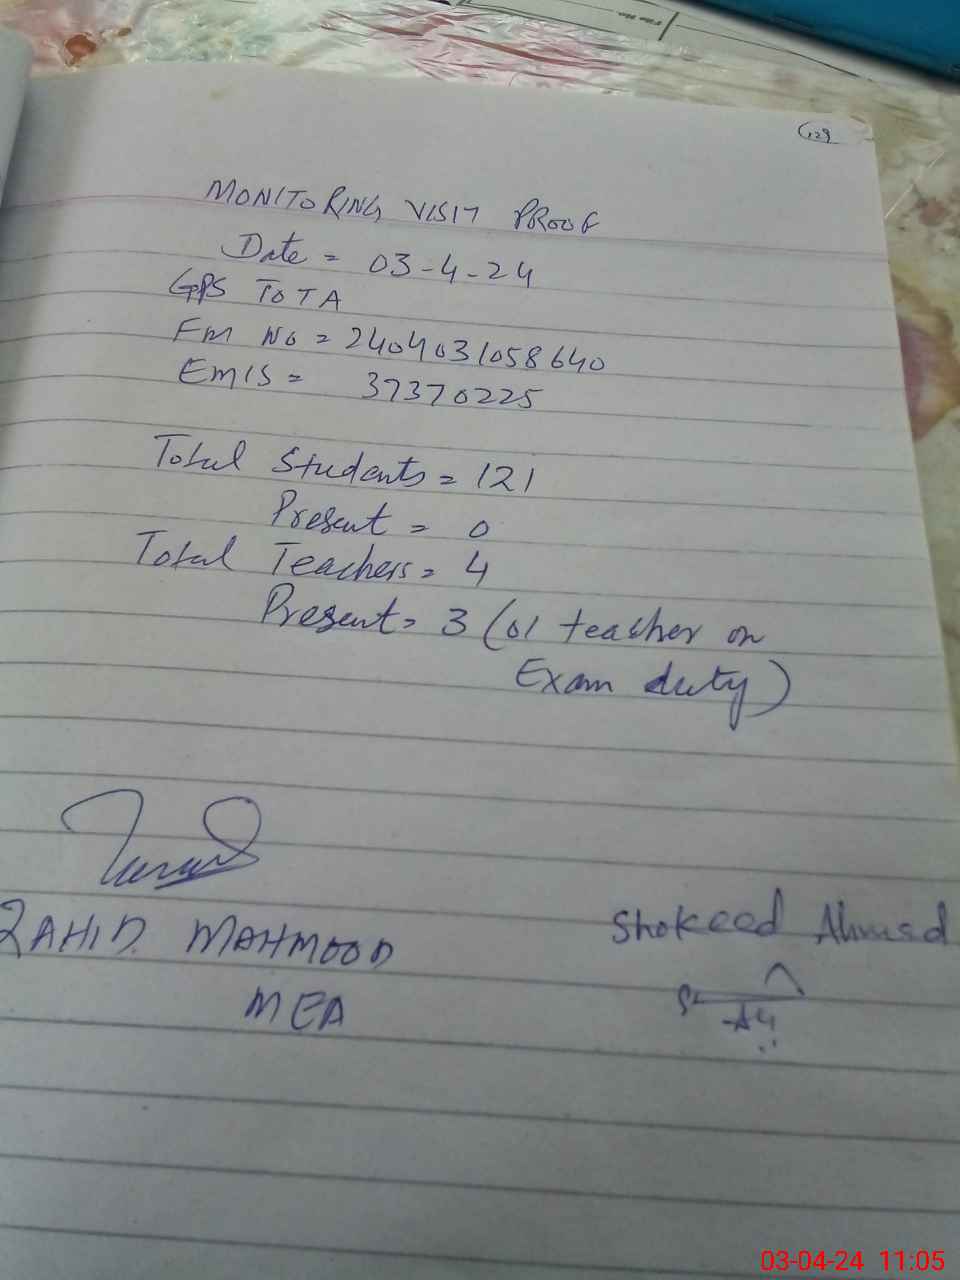 129
MONITORING VISIT PROOF
Date = 03-4-24
GPS TOTA
FM No = 2404031058640
EMIS = 37370225
Total Students = 121
Present = 0
Total Teachers = 4
Present = 3 (01 teacher on
Exam duty)
ZAHID MAHMOOD
MEA
Shakeed Ahmad
03-04-24 11:05